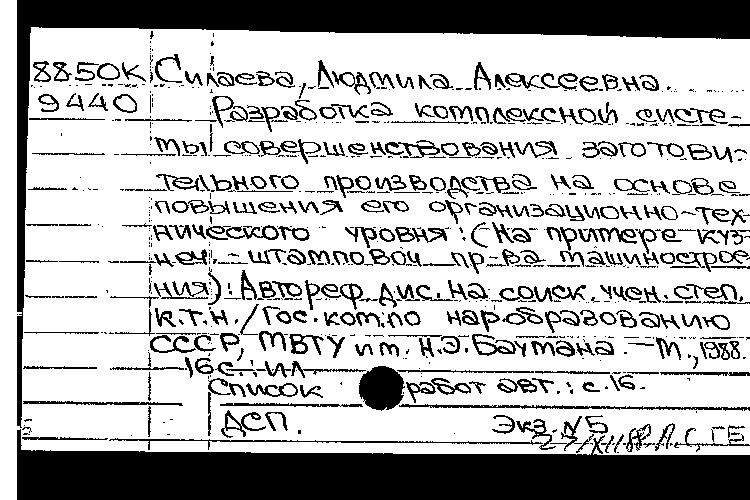 8850К Силаева, Людмила Алексеевна.
9440 Разработка комплексной систе-
мы совершенствования заготови-
тельного производства на основе
повышения его организационно-тех-
нического уровня: (На примере куз-
неч.-штамповой пр-ва машинострое
ния): Автореф. дис. на соиск. учен. степ.
к.т.н./Гос. ком. по нар. образованию
СССР, МВТУ им. Н.Э. Баумана. — М., 1988. —
16 с.: ил.
Список работ авт.: с. 16.
ДСП. Экз. N5
27/XII 88 Л.С, ГБ